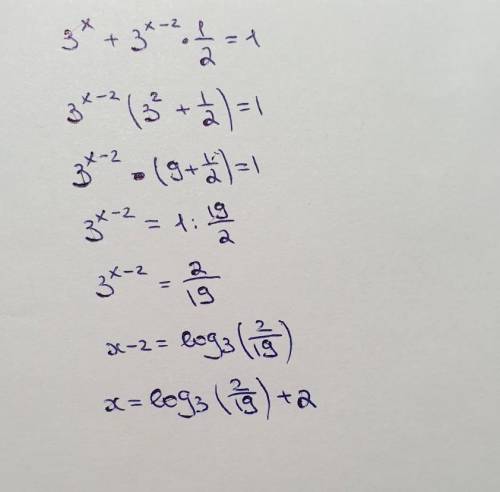 3^x + 3^{x-2} · 1/2 = 1
3^{x-2} (3^2 + 1/2) = 1
3^{x-2} · (9 + 1/2) = 1
3^{x-2} = 1 : 19/2
3^{x-2} = 2/19
x-2 = log_3 (2/19)
x = log_3 (2/19) + 2